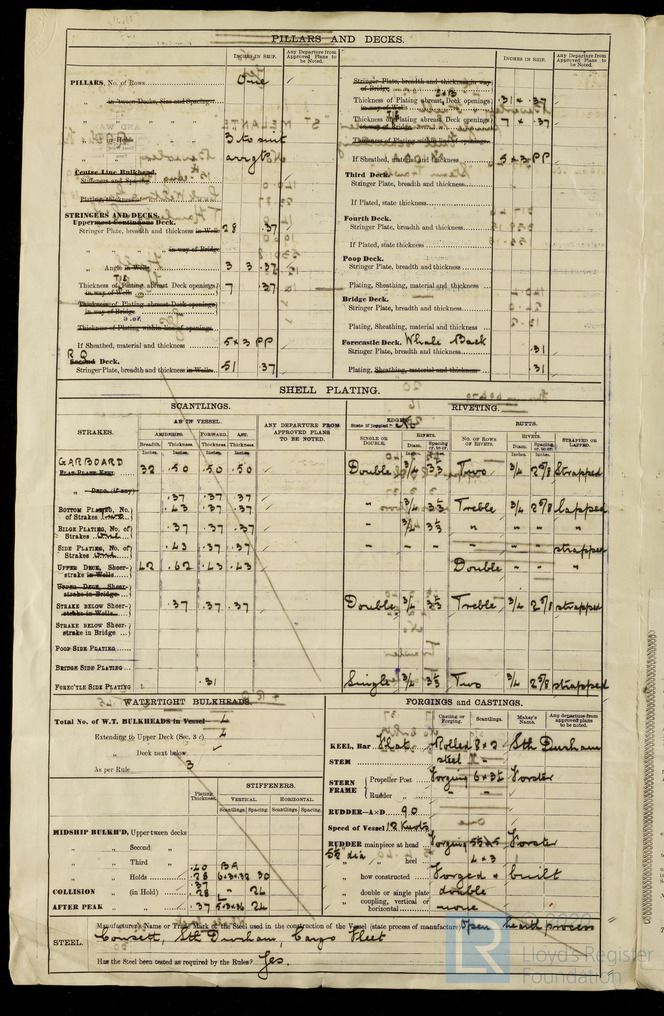 PILLARS AND DECKS.
INCHES IN SHIP. Any Departure from Approved Plans to be Noted.
PILLARS, No. of Rows One
in 'tween Decks, Size and Spacing
" in Holds 3 to suit
arrgt
Centre Line Bulkhead.
Stiffeners and Spacing
Plating, thickness
STRINGERS AND DECKS.
Uppermost Continuous Deck.
Stringer Plate, breadth and thickness in Wells 28 .37
" " in way of Bridge
" Angle in Wells 3 3 .37
Thickness of Plating abreast Deck openings in way of Wells 7 .37
Thickness of Plating abreast Deck openings in way of Bridge
Thickness of Plating within line of openings
If Sheathed, material and thickness 5 x 3 PP
R Q
Second Deck.
Stringer Plate, breadth and thickness in Wells 51 .37
INCHES IN SHIP. Any Departure from Approved Plans to be Noted.
Stringer Plate, breadth and thickness in way of Bridge
Thickness of Plating abreast Deck openings in way of Wells .31 x .37
Thickness of Plating abreast Deck openings in way of Bridge 7 x .37
Thickness of Plating within line of openings
If Sheathed, material and thickness 5 x 3 PP
Third Deck.
Stringer Plate, breadth and thickness
If Plated, state thickness
Fourth Deck.
Stringer Plate, breadth and thickness
If Plated, state thickness
Poop Deck.
Stringer Plate, breadth and thickness
Plating, Sheathing, material and thickness
Bridge Deck.
Stringer Plate, breadth and thickness
Plating, Sheathing, material and thickness
Forecastle Deck. Whale Back
Stringer Plate, breadth and thickness .31
Plating, Sheathing, material and thickness .31
SHELL PLATING.
SCANTLINGS. RIVETING.
STRAKES. AS IN VESSEL. ANY DEPARTURE FROM APPROVED PLANS TO BE NOTED. EDGES. State if joggled? No BUTTS.
AMIDSHIPS. FORWARD. AFT. SINGLE OR DOUBLE. RIVETS. NO. OF ROWS OF RIVETS. RIVETS. STRAPPED OR LAPPED.
Breadth. Thickness. Thickness. Thickness. Diam. Spacing cr. to cr. Diam. Spacing cr. to cr.
GARBOARD
FLAT PLATE KEEL 32 .50 .50 .50 Double 3/4 3 1/3 Two 3/4 2 5/8 Strapped
" DBLG. (if any)
.37 .37 .37
BOTTOM PLATING, No. of Strakes .43 .37 .37 " 3/4 3 1/3 Treble 3/4 2 5/8 lapped
BILGE PLATING, No. of Strakes .37 .37 .37 " 3/4 3 1/3 " " " "
SIDE PLATING, No. of Strakes .43 .37 .37 " " " strapped
UPPER DECK, Sheerstrake in Wells 42 .62 .43 .43 Double " "
UPPER DECK, Sheerstrake in Bridge
STRAKE BELOW Sheerstrake in Wells .37 .37 .37 Double 3/4 3 1/3 Treble 3/4 2 5/8 strapped
STRAKE BELOW Sheerstrake in Bridge
POOP SIDE PLATING
BRIDGE SIDE PLATING
FOREC'TLE SIDE PLATING .31 Single 3/4 3 1/3 Two 3/4 2 5/8 strapped
WATERTIGHT BULKHEADS.
Total No. of W.T. BULKHEADS in Vessel 4
Extending to Upper Deck (Sec. 3 c) 4
" Deck next below
As per Rule 3
Plating Thickness. STIFFENERS.
VERTICAL. HORIZONTAL.
Scantlings. Spacing. Scantlings. Spacing.
MIDSHIP BULKH'D, Upper tween decks
" " Second "
" " Third "
" " Holds .40 .28 BA 6x3x.32 30
COLLISION " (in Hold) .37 .28 " 24
AFTER PEAK " " .37 24
FORGINGS and CASTINGS.
Casting or Forging. Scantlings. Maker's Name. Any departure from approved plans to be noted.
KEEL, Bar Flat Rolled 8 x 2 Sth Durham
STEM steel
STERN FRAME Propeller Post Forging Forster
Rudder "
RUDDER—A×D 90
Speed of Vessel 12 Knots
RUDDER mainpiece at head Forging Forster
" " heel 4 x 3
" how constructed Forged & built
" double or single plate double
" coupling, vertical or horizontal none
STEEL. Manufacturer's Name or Trade Mark of the Steel used in the construction of the Vessel (state process of manufacture) Open hearth process
Consett, Sth Durham, Cargo Fleet
Has the Steel been tested as required by the Rules? Yes.
LR
Lloyd's Register
Foundation